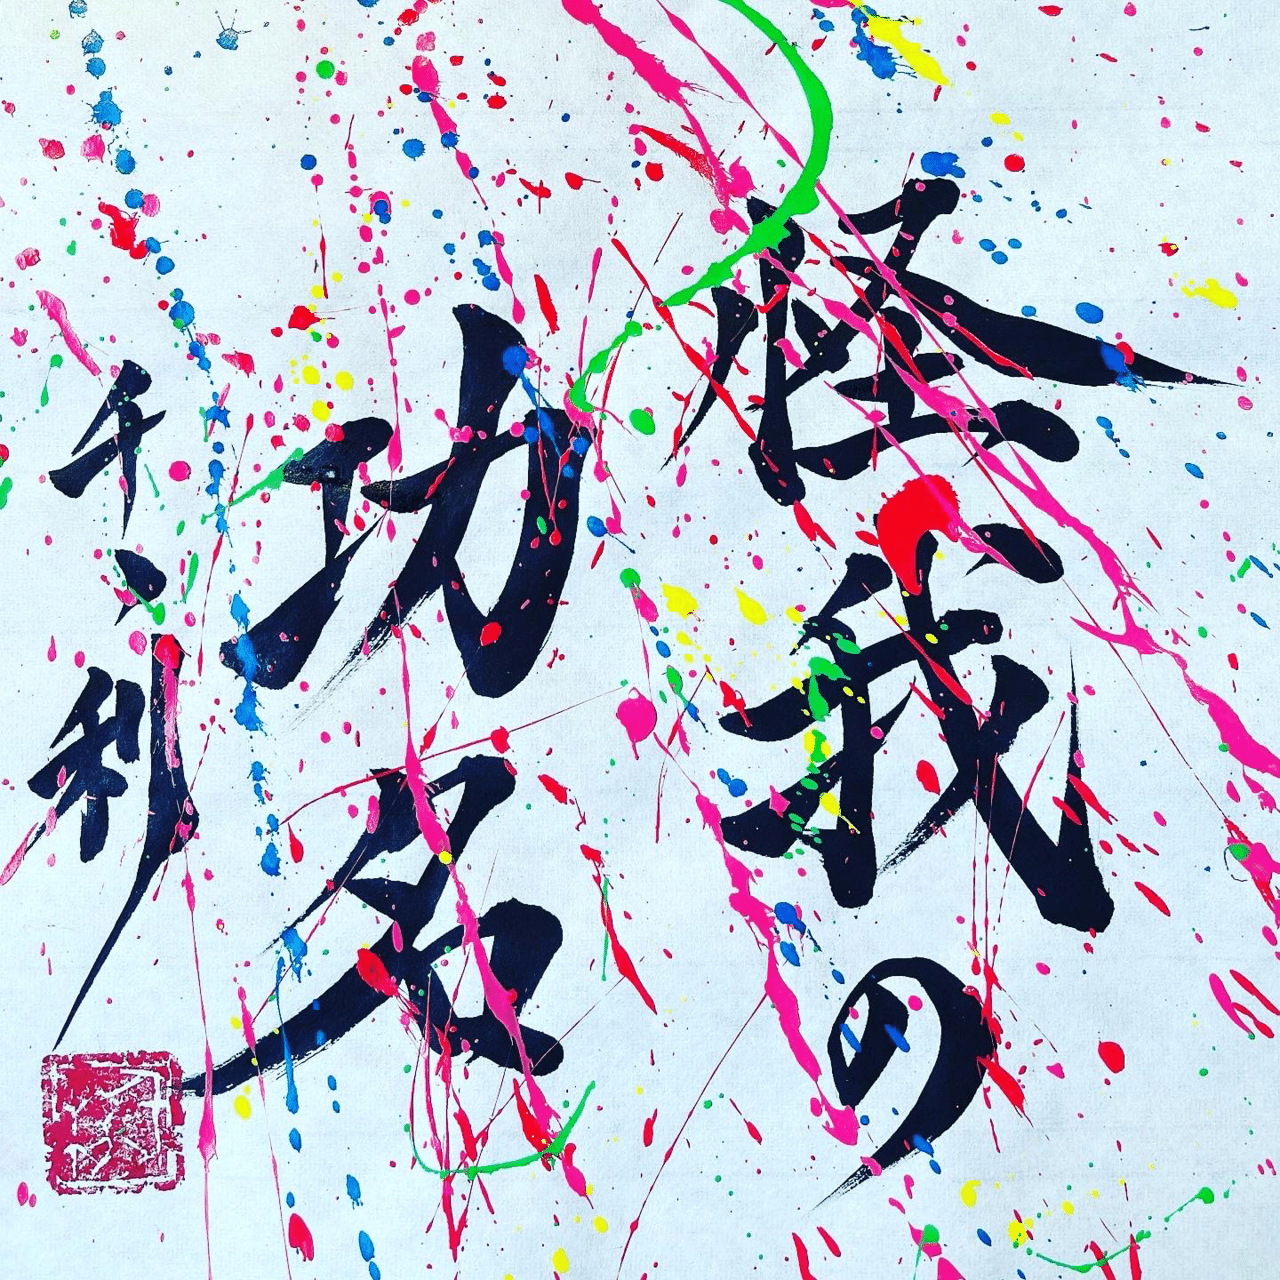 怪我の
功名
千、利